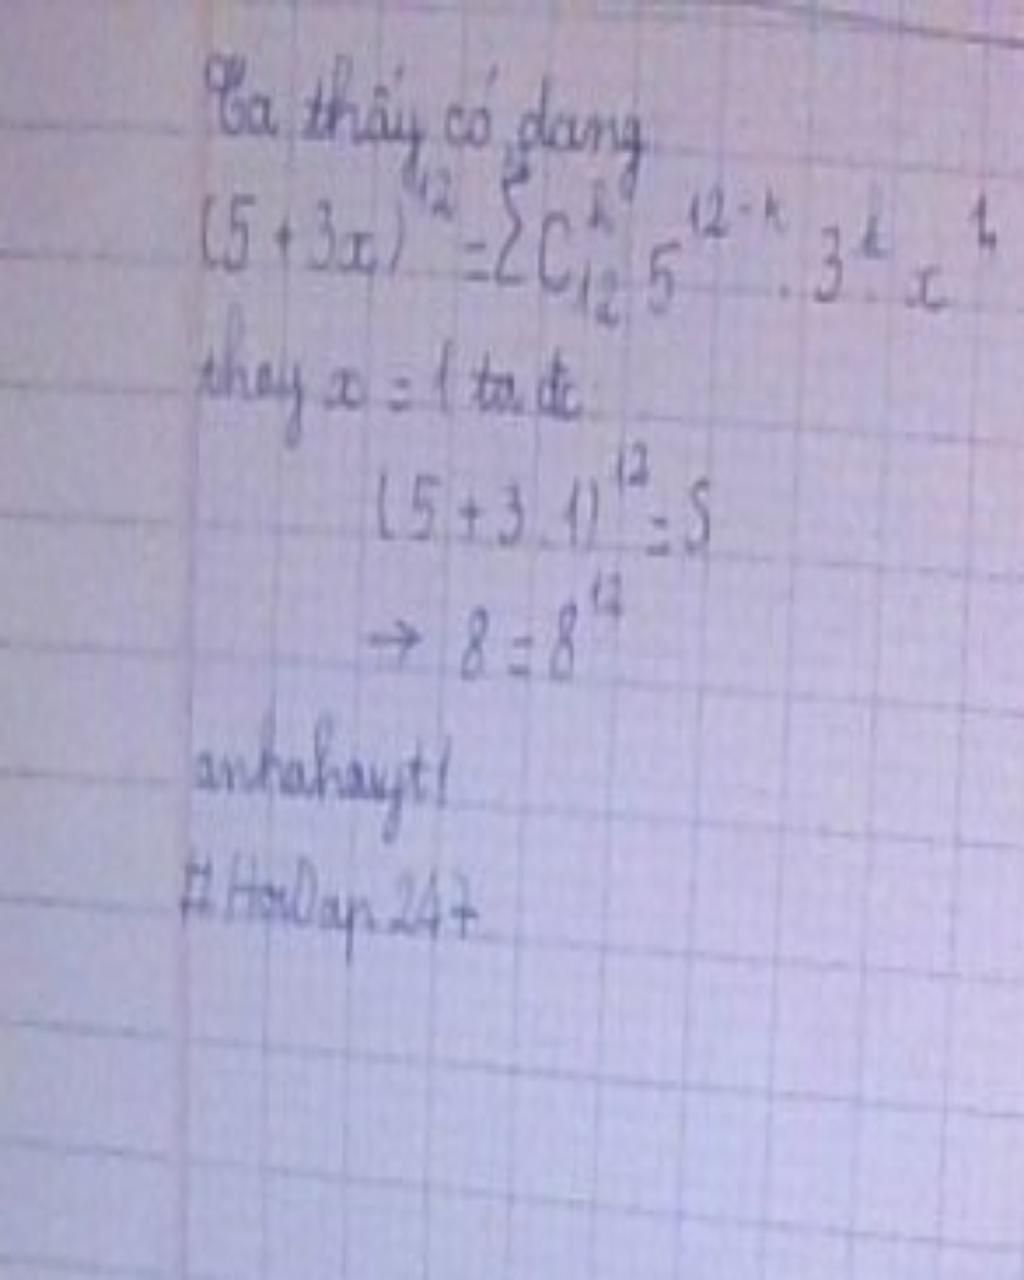 Ta thấy có dạng
(5 + 3x)^12 = Σ C_12^k 5^12-k . 3^k x^k
thay x = 1 ta đc
(5 + 3.1)^12 = S
→ 8 = 8^12
anhahayt!
# HoiDap247